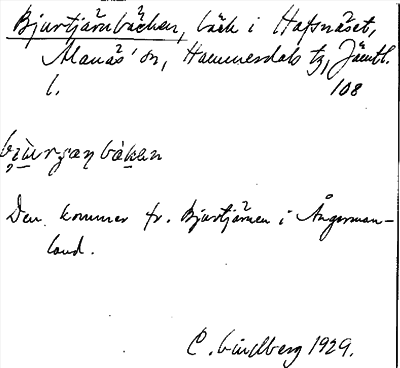 Bjurtjärnbäcken, bäck i Hafsnäset,
Alanäs' sn, Hammerdals tg, Jämtl.
l. 108
bäkan
Den kommer fr. Bjurtjärnen i Ångerman-
land.
C. Lindberg 1929.